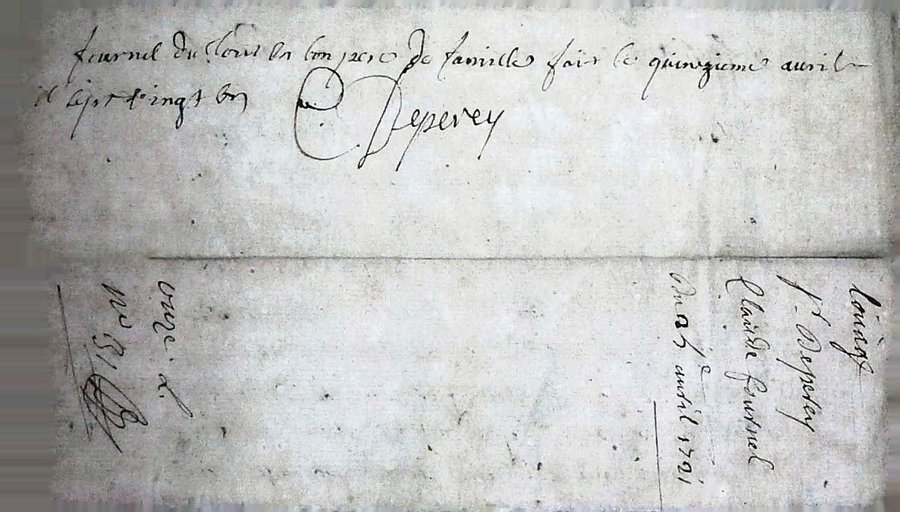 fournel Du tout en bon pere De famille fait le quinzieme auril
il sept vingt Un C Deperey
Louage
Sr. Deperey
Claude fournel
Du 15e auril 1721
onze. L
no 31